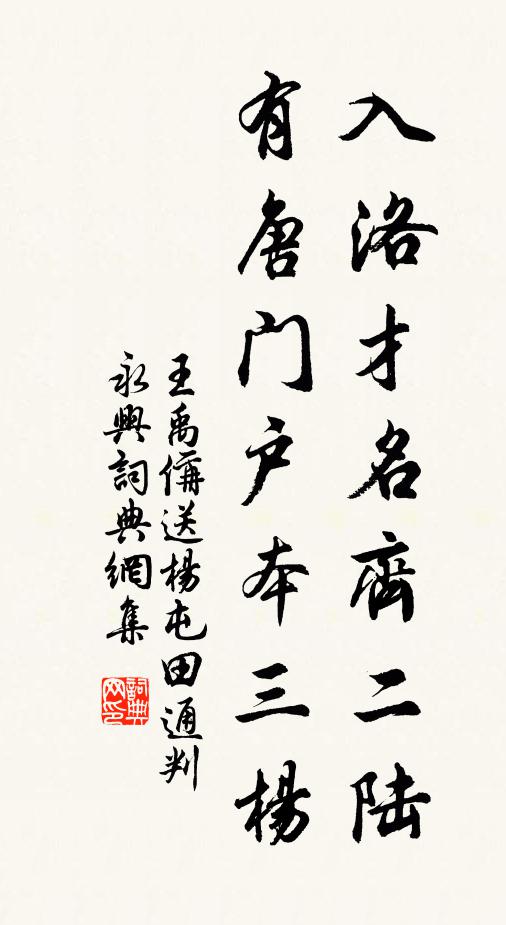 入洛才名齊二陆
有唐門户本三楊
王禹偁送楊屯田通判
永興詞典網集
詞典网印